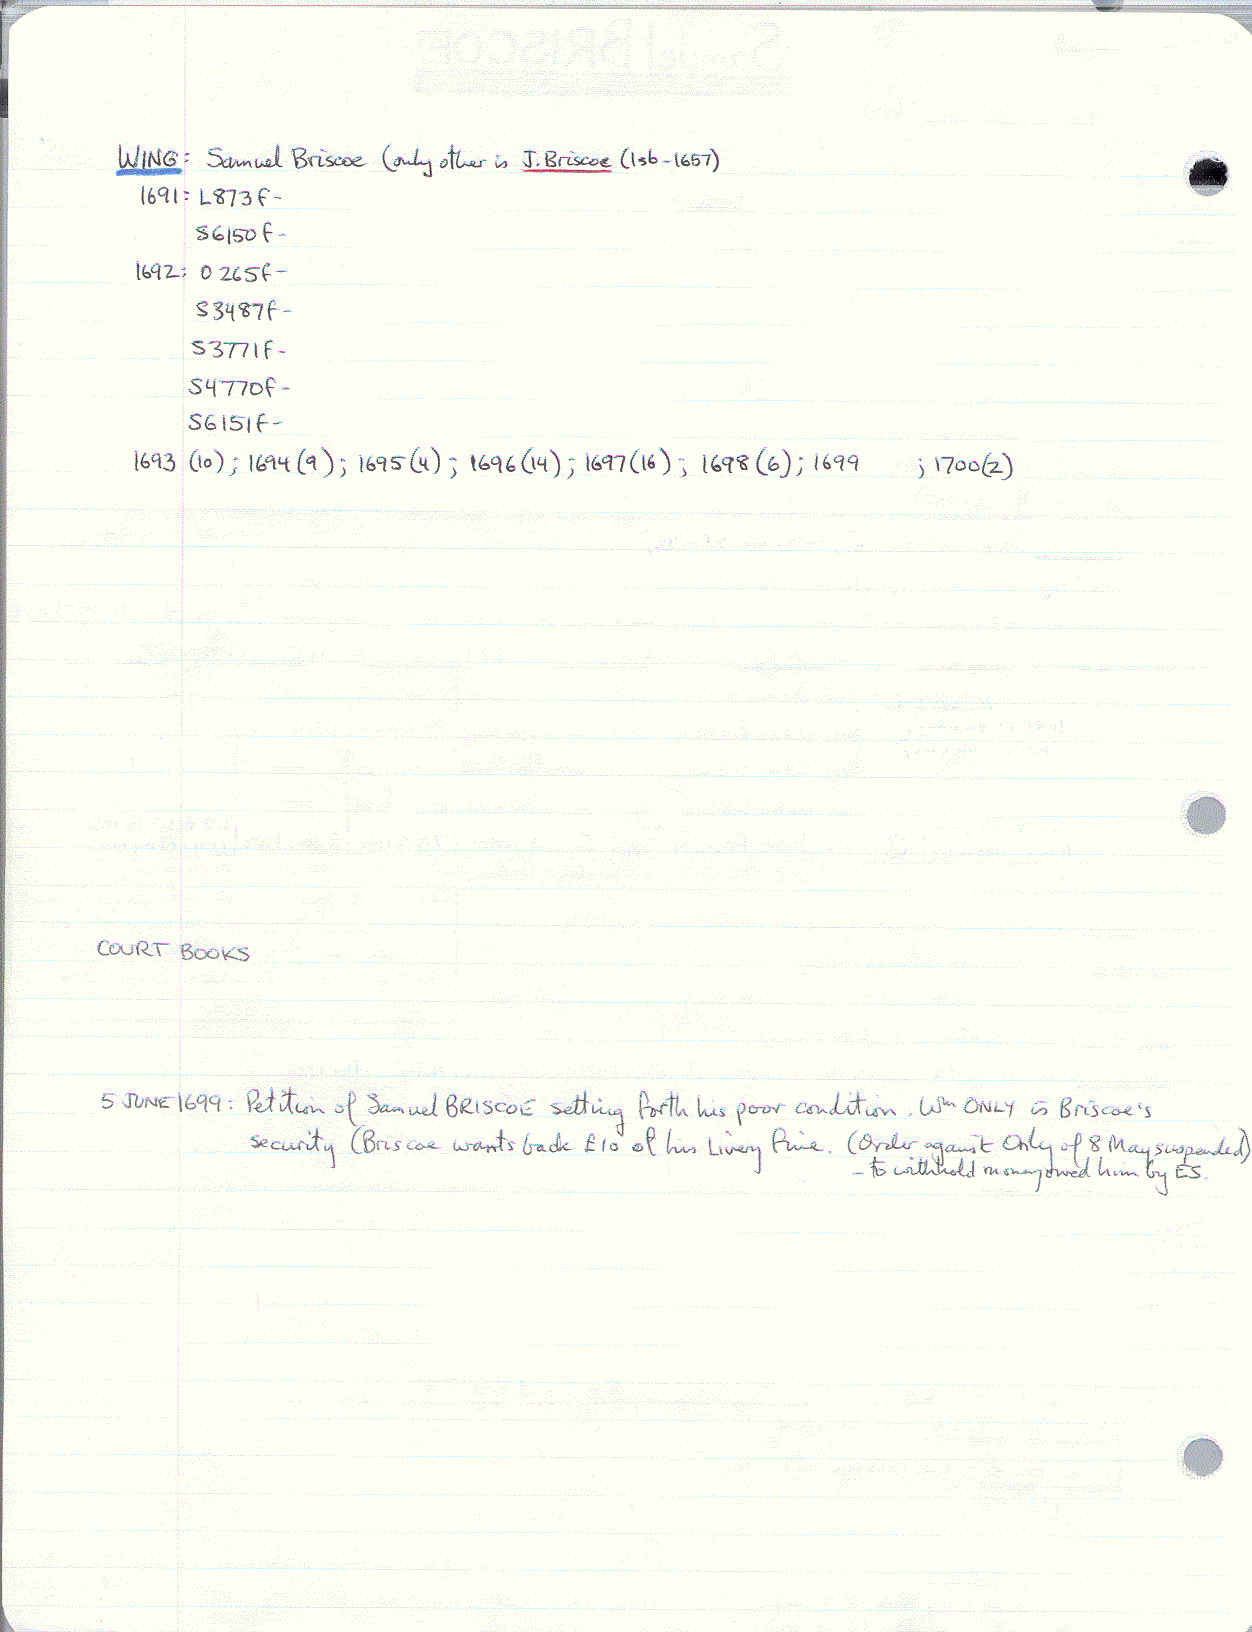 WING: Samuel Briscoe (only other is J. Briscoe (1sb-1657)
1691: L873f-
S6150f-
1692: O265f-
S3487f-
S3771f-
S4770f-
S6151f-
1693 (10); 1694 (9); 1695 (4); 1696 (14); 1697 (16); 1698 (6); 1699 ; 1700(2)
COURT BOOKS
5 JUNE 1699: Petition of Samuel BRISCOE setting forth his poor condition. Wm ONLY is Briscoe's
security (Briscoe wants back £10 of his Livery Fine. (Order against Only of 8 May suspended)
- to withhold money owed him by ES.